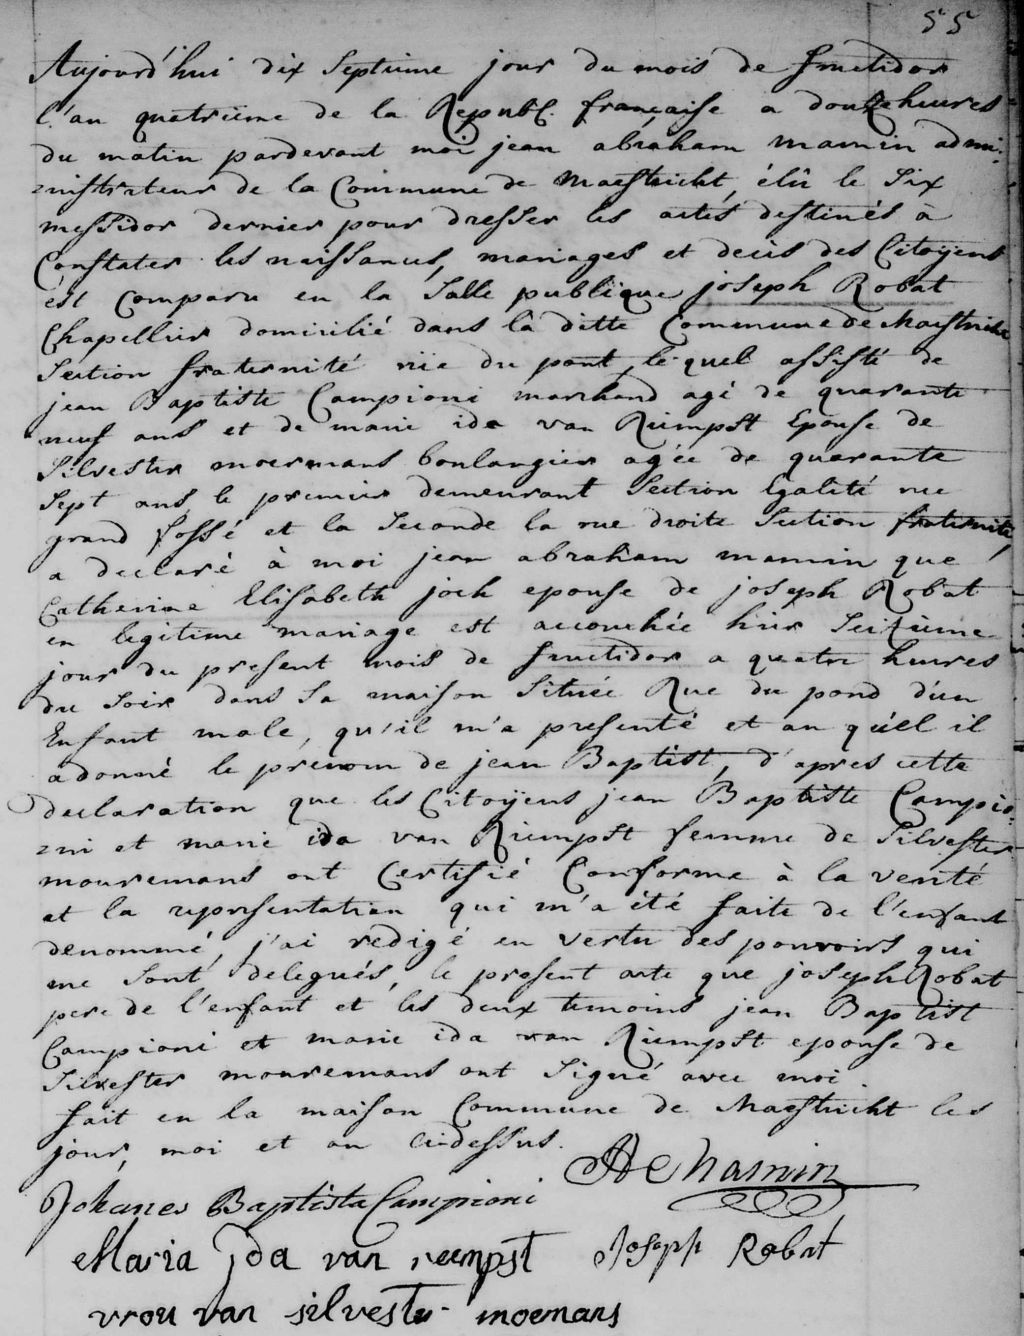 55
Aujourd'hui dix Septieme jour du mois de fructidor
l'an quatrieme de la Republ. française a douze heures
du matin pardevant moi jean abraham mamin admi-
nistrateur de la Commune de Maestricht, élû le Six
messidor dernier pour dresser les actes destinés à
Constater les naissances, mariages et decès des Citoÿens
est comparu en la Salle publique joseph Robat
Chapellier domicilié dans la ditte Commune de Maestricht
Section fraternité rüe du pont, le quel assisté de
jean Baptiste Campioni marchand agé de quarante
neuf ans et de marie ida van Rümpst Epouse de
Silvester moermans boulangier agée de quarante
Sept ans, le premier demeurant Section Egalité rue
grand fossé et la Seconde la rue droite Section fraternité,
a declaré à moi jean abraham mamin que
Catherine Elisabeth joek epouse de joseph Robat
en legitime mariage est accouchée hier Seizieme
jour du present mois de fructidor a quatre heures
du Soir dans Sa maison Située Rue du pond d'un
Enfant male, qu'il m'a presenté et au quèl il
a donné le prenom de jean Baptist, d'apres cette
declaration que les Citoÿens jean Baptiste Campio-
ni et marie ida van Rümpst femme de Silvester
mouremans ont Certifié Conforme à la verité
et la representation qui m'a été faite de l'enfant
denommé, j'ai redigé en vertu des pouvoirs qui
me Sont delegués, le present acte que joseph Robat
pere de l'enfant et les deux temoins jean Baptist
Campioni et marie ida van Rümpst epouse de
Silvester mouremans ont Signé avec moi.
fait en la maison Commune de Maestricht les
jour, moi et an cidessus.
Mamin
Johanes Baptista Campioni
Maria Ida van reempst Joseph Robat
vrou van silvester moemans